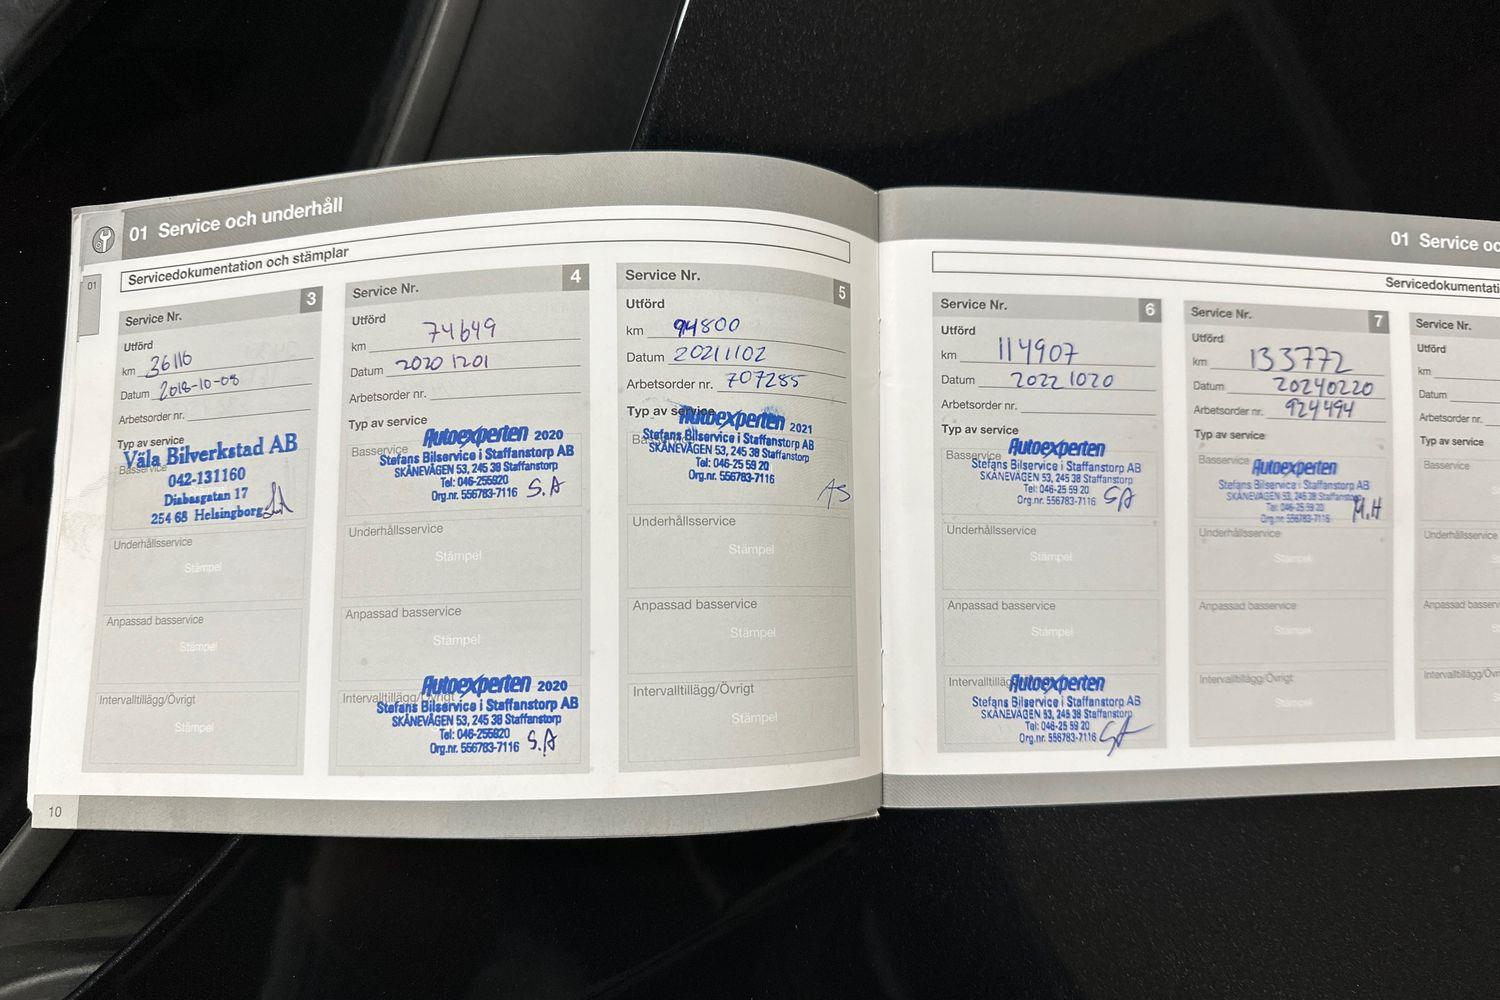 01 Service och underhåll
Servicedokumentation och stämplar
01
Service Nr. 3
Utförd
km 36116
Datum 2018-10-08
Arbetsorder nr.
Typ av service
Basservice
Väla Bilverkstad AB
042-131160
Diabasgatan 17
254 68 Helsingborg
Underhållsservice
Stämpel
Anpassad basservice
Stämpel
Intervalltillägg/Övrigt
Stämpel
10
Service Nr. 4
Utförd
km 74649
Datum 20201201
Arbetsorder nr.
Typ av service
Basservice
Autoexperten 2020
Stefans Bilservice i Staffanstorp AB
SKÅNEVÄGEN 53, 245 38 Staffanstorp
Tel: 046-255920
Org.nr. 556783-7116 S.A
Underhållsservice
Stämpel
Anpassad basservice
Stämpel
Intervalltillägg/Övrigt
Autoexperten 2020
Stefans Bilservice i Staffanstorp AB
SKÅNEVÄGEN 53, 245 38 Staffanstorp
Tel: 046-255920
Org.nr. 556783-7116 S.A
Service Nr. 5
Utförd
km 94800
Datum 20211102
Arbetsorder nr. 707285
Typ av service
Autoexperten 2021
Stefans Bilservice i Staffanstorp AB
SKÅNEVÄGEN 53, 245 38 Staffanstorp
Tel: 046-25 59 20
Org.nr. 556783-7116
AS
Underhållsservice
Stämpel
Anpassad basservice
Stämpel
Intervalltillägg/Övrigt
Stämpel
01 Service oc
Servicedokumentati
Service Nr. 6
Utförd
km 114907
Datum 20221020
Arbetsorder nr.
Typ av service
Basservice
Autoexperten
Stefans Bilservice i Staffanstorp AB
SKÅNEVÄGEN 53, 245 38 Staffanstorp
Tel: 046-25 59 20
Org.nr. 556783-7116 SA
Underhållsservice
Stämpel
Anpassad basservice
Stämpel
Intervalltilläg
Autoexperten
Stefans Bilservice i Staffanstorp AB
SKÅNEVÄGEN 53, 245 38 Staffanstorp
Tel: 046-25 59 20
Org.nr. 556783-7116 SA
Service Nr. 7
Utförd
km 133772
Datum 20240220
Arbetsorder nr. 924494
Typ av service
Basservice
Autoexperten
Stefans Bilservice i Staffanstorp AB
SKÅNEVÄGEN 53, 245 38 Staffanstorp
Tel: 046-25 59 20
Org.nr. 556783-7116 M.H
Underhållsservice
Stämpel
Anpassad basservice
Stämpel
Intervalltillägg/Övrigt
Stämpel
Service Nr.
Utförd
km
Datum
Arbetsorder nr.
Typ av service
Basservice
Underhållsservice
Anpassad basserv
Intervalltillägg/Övr